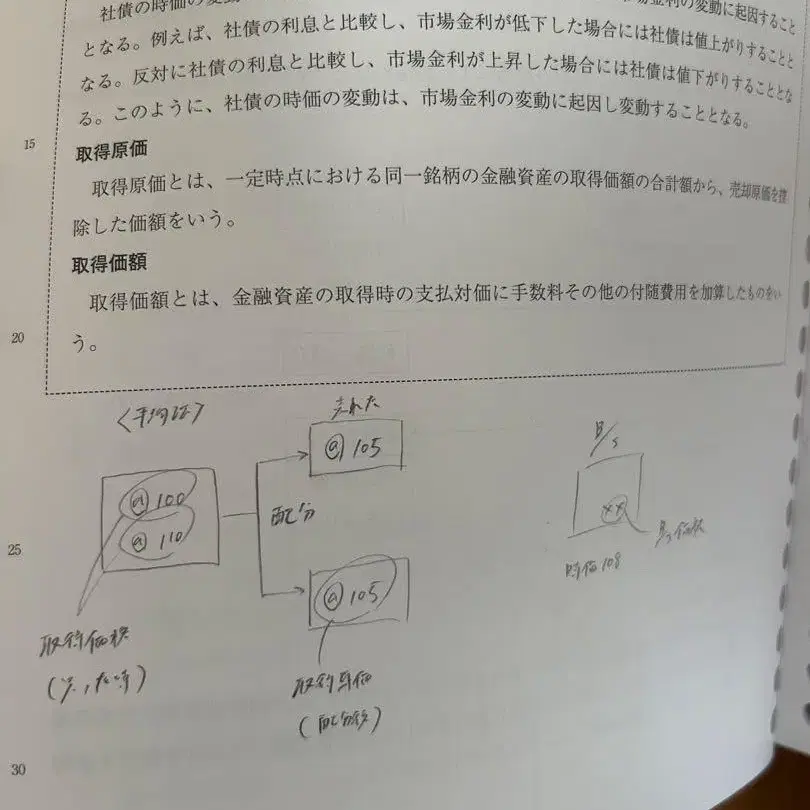 社債の時価の変動
金利の変動に起因すること
となる。例えば、社債の利息と比較し、市場金利が低下した場合には社債は値上がりすることと
なる。反対に社債の利息と比較し、市場金利が上昇した場合には社債は値下がりすることとな
る。このように、社債の時価の変動は、市場金利の変動に起因し変動することとなる。
15
取得原価
取得原価とは、一定時点における同一銘柄の金融資産の取得価額の合計額から、売却原価を控
除した価額をいう。
取得価額
取得価額とは、金融資産の取得時の支払対価に手数料その他の付随費用を加算したものをい
20
う。
〈平均法〉
売れた
@ 105
B/S
@ 100
@ 110
配分
××
B/S価額
25
時価108
@ 105
取得価額
(買った時)
取得原価
(配分後)
30